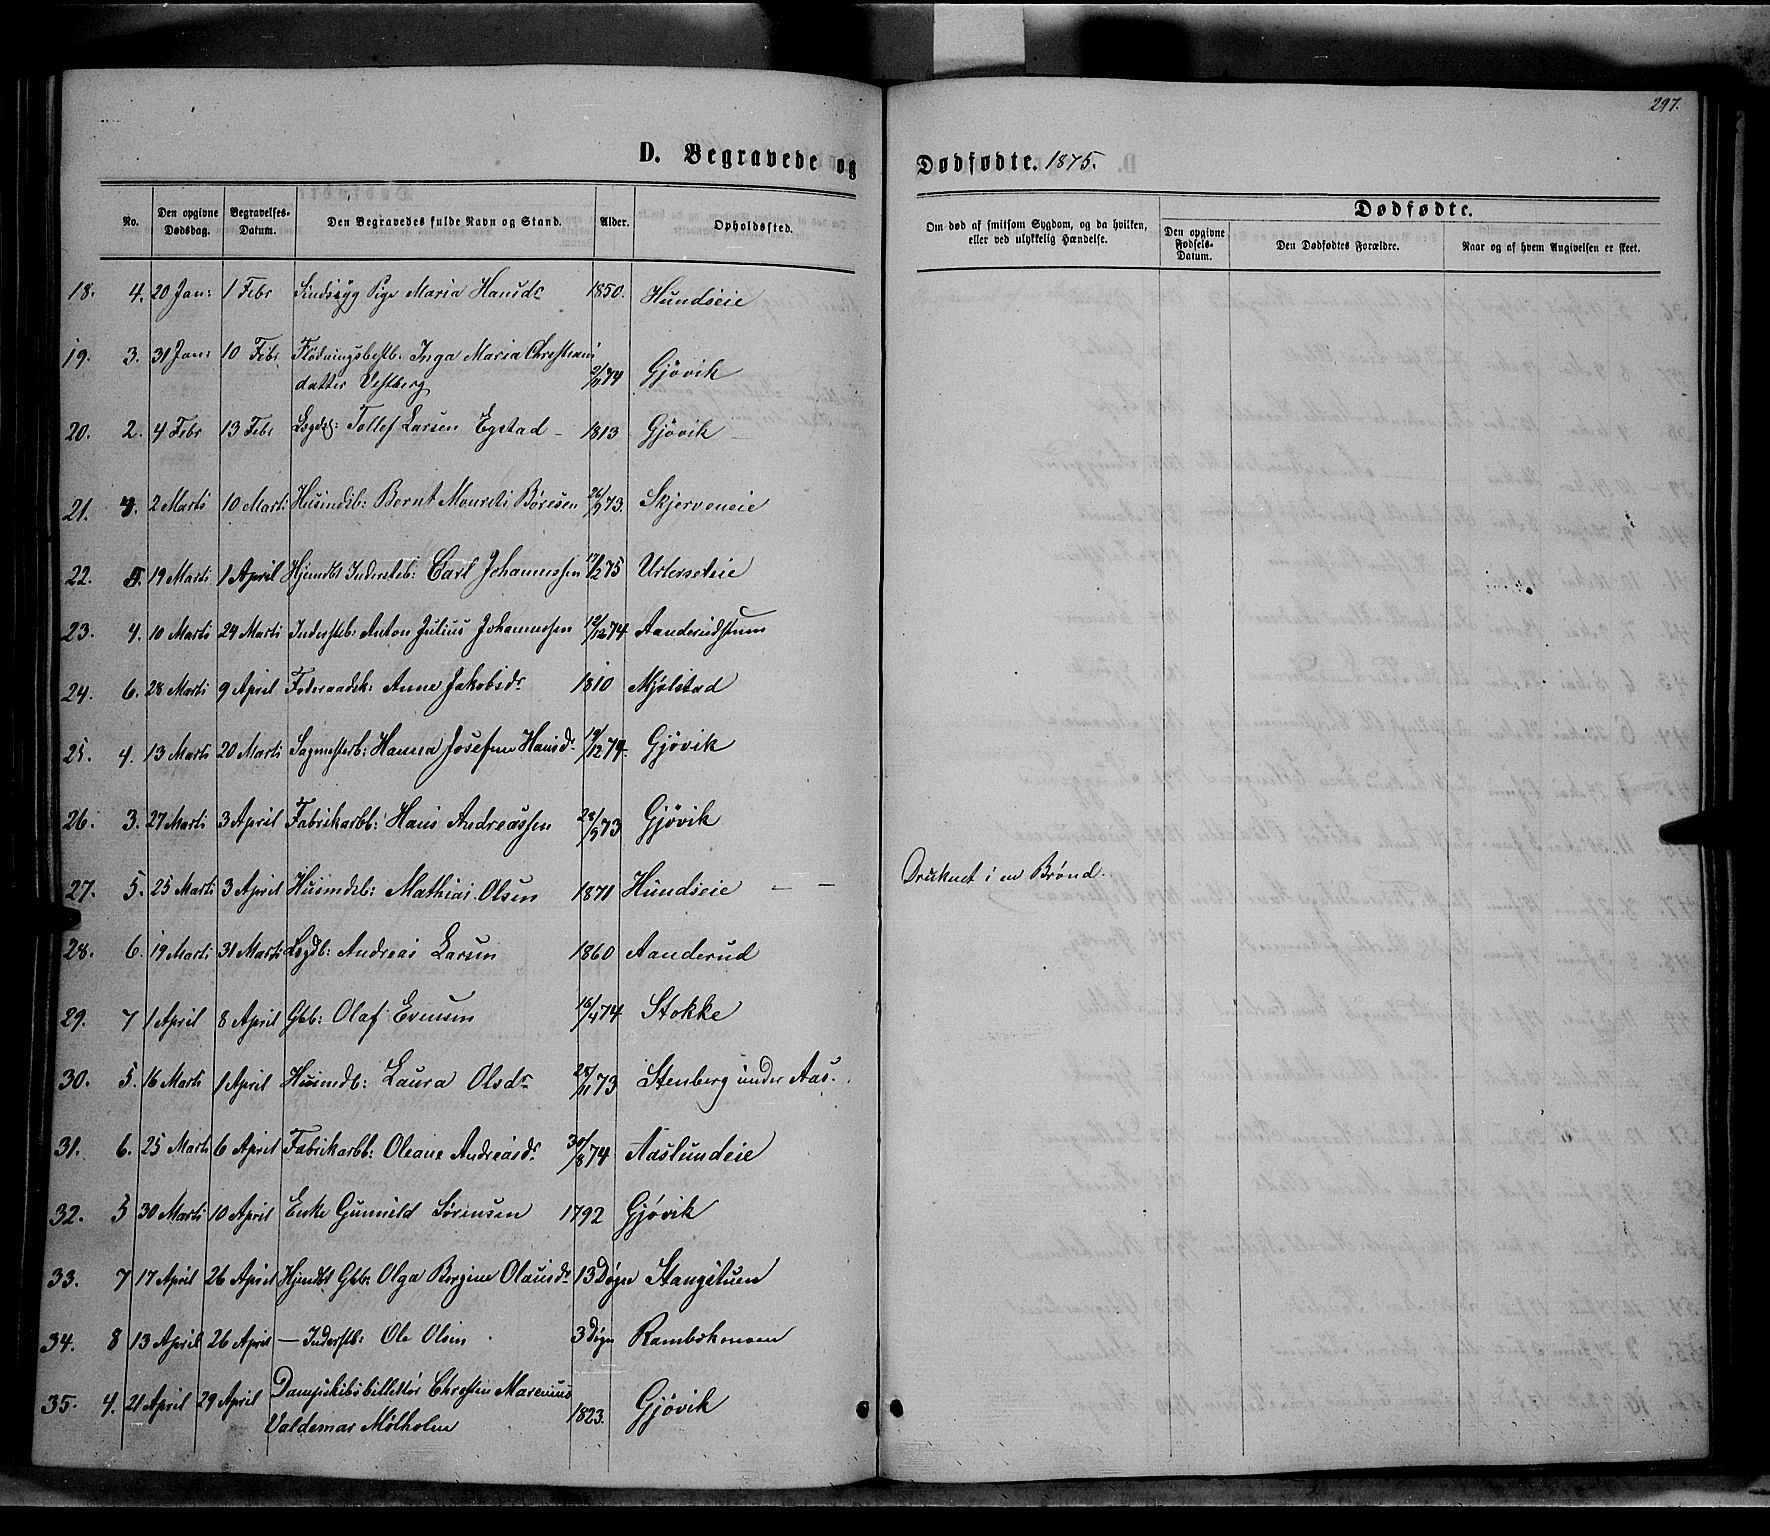 297.
D. Begravede og Dødfødte. 1875.
No. Den opgivne Dødsdag. Begravelses-Datum. Den Begravedes fulde Navn og Stand. Alder. Opholdssted. Om død af smitsom Sygdom, og da hvilken, eller ved ulykkelig Hændelse. Dødfødte. Den opgivne Fødsels-Datum. Den Dødfødtes Forældre. Naar og af hvem Angivelsen er skeet.
18. 4. 20 Jan: 1 Febr Sindssyg Pige Maria Hansdr 1850. Hundseie
19. 3. 31 Jan: 10 Febr Inga Maria Christians
datter Vestberg 2/11 74 Gjøvik
20. 2. 4 Febr 13 Febr Lægdsl: Tollef Larsen Egstad - 1813 Gjøvik -
21. 2 Marts 10 Marts Husmdsb: Bernt Mourits Børesen 26/9 73. Skjerveneie
22. 5. 19 Marts 1 April Hjemdbt Inderstsb: Carl Johannessen 17/2 75 Urterseteie
23. 4. 10 Marts 24 Marts Inderstsb: Anton Julius Johannessen 19/12 74 Aanderudstuen
24. 6. 28 Marts 9 April Føderaadsk: Anne Jakobsdr 1810 Mjølstad
25. 4. 13 Marts 20 Marts Sagmesterb: Hanna Josefine Hansdr 19/12 74. Gjøvik
26. 3. 27 Marts 3 April Fabrikarbb: Hans Andreassen 28/9 73 Gjøvik
27. 5. 25 Marts 3 April Husmdsb: Mathias Olsen 1871 Hundseie - - Druknet i en Brønd.
28. 6. 19 Marts 31 Marts Lægdb: Andreas Larsen 1860 Aanderud
29. 7 1 April 8 April Gbb: Olaf Evensen 16/4 74 Stokke
30. 5. 16 Marts 1 April Husmdb: Laura Olsdr 28/11 73 Stenberg under Aas.
31. 6. 25 Marts 6 April Fabrikarbb: Oleane Andreasdr 30/8 74 Aaslundeie
32. 5 30 Marts 10 April Enke Gunnild Sørensen 1792 Gjøvik
33. 7 17 April 26 April Hjemdbt Gbb: Olga Bergine Olausdr 13 Døgn Stangstuen
34. 8 13 April 26 April - Inderstb: Ole Olsen 3 Døgn Rambekmoen
35. 4. 21 April 29 April Dampskibsbillettør Christen Marenius
Valdemar Mølholm 1823. Gjøvik